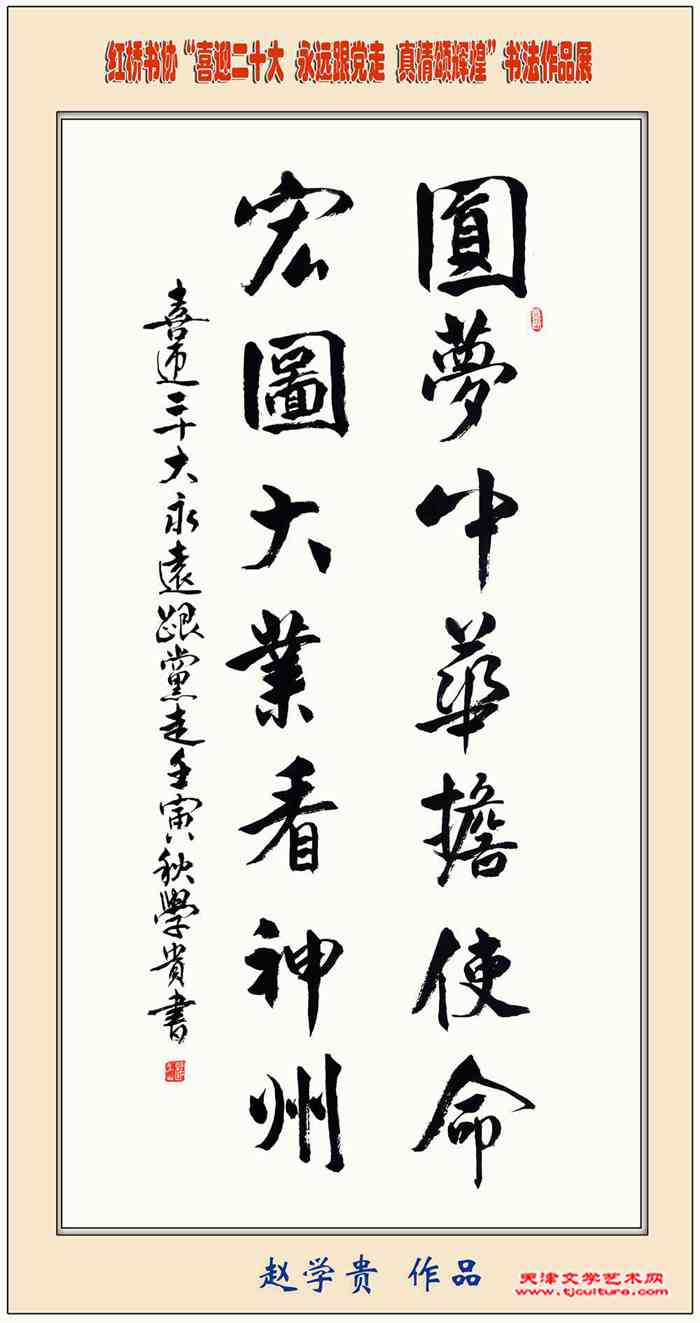 红桥书协“喜迎二十大 永远跟党走 真情颂辉煌”书法作品展
圓夢中華擔使命
宏圖大業看神州
喜迎二十大永遠跟黨走壬寅秋學貴書
赵学贵 作品
天津文学艺术网
www.tjculture.com